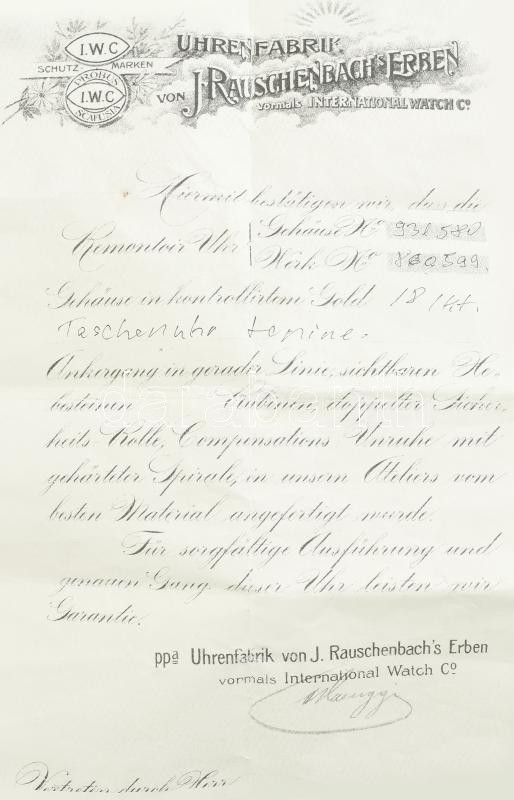 I.W.C
SCHUTZ MARKEN
PROBUS
I.W.C
SCAFUSIA
UHRENFABRIK
VON J. RAUSCHENBACH'S ERBEN
vormals INTERNATIONAL WATCH Co.
Hiermit bestätigen wir, dass die
Remontoir Uhr
Gehäuse No 931580
Werk No 860599.
Gehäuse in kontrollirtem Gold 18 Kt.
Taschenuhr
Ankergang in gerader Linie, sichtbaren He-
besteinen Rubinen, doppelter Sicher-
heits-Rolle, Compensations Unruhe mit
gehärteter Spirale, in unsern Ateliers vom
besten Material angefertigt wurde.
Für sorgfältige Ausführung und
genauen Gang dieser Uhr leisten wir
Garantie.
ppa Uhrenfabrik von J. Rauschenbach's Erben
vormals International Watch Co.
Vertreten durch Herr